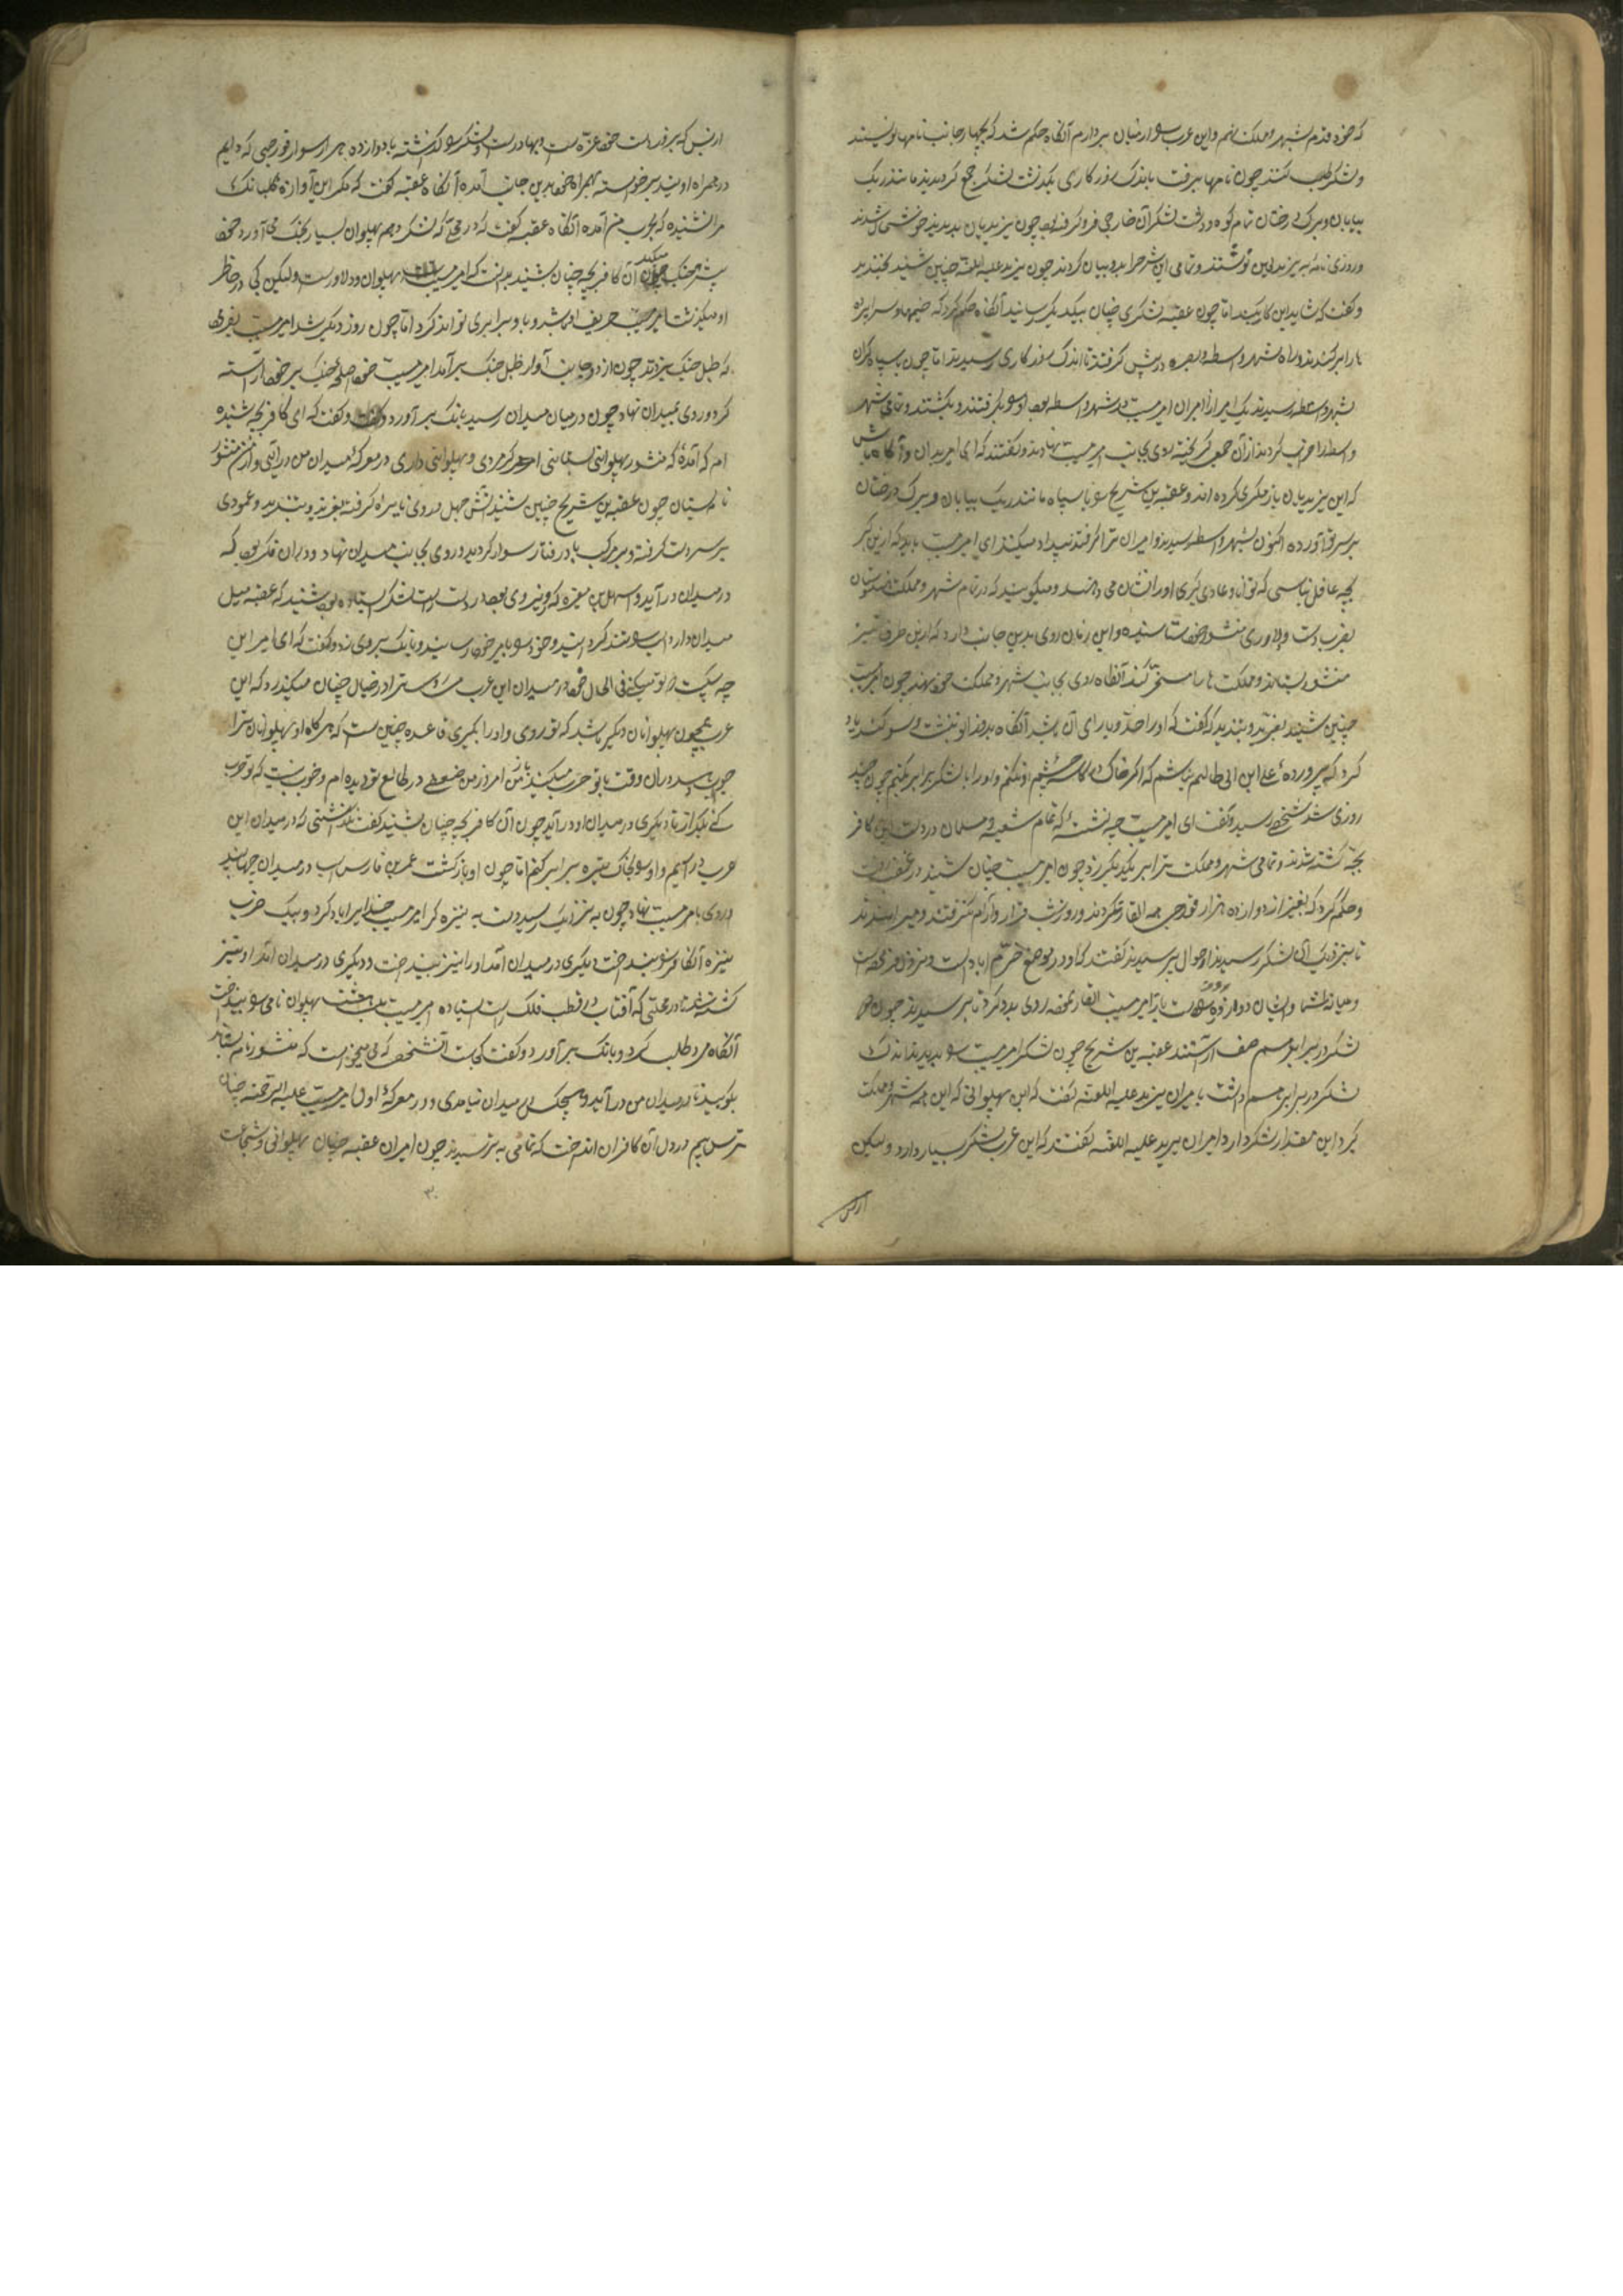 که خود قدم بشهر و مملکت نهم و این عرب را از میان بردارم آنگاه حکم شد که بچهار جانب نامها نویسند
و لشکر طلب کنند چون نامها برفت باندک روزکاری یکدشت لشکر جمع کردیدند مانند ریک
بیابان و برک درختان تمام کوه و دشت لشکر آن خارجی فرو کرفته بود چون یزیدیان بدیدند خوشحال شدند
و روزی نامه به یزید لعین نوشتند و تمامی این شرح را بدو بیان کردند چون یزید علیه اللعنه چنین شنید بخندید
و کفت که شاید این کار بکنید اما چون عقبه لشکری چنان بیکدیکر رسانید آنگاه حکم کرد که خیمها و سراپرده
ها را برکندند و راه شهر واسطه و بصره در پیش کرفتند تا اندک روزکاری رسیدند اما چون با سپاه کران
بشهر واسطه رسیدند یک امیر از امیران امیر مسیب در شهر واسطه بود او را بکرفتند و بکشتند و تمامی شهر
واسطه را خراب کردند از آن جمع کریخته روی بجانب امیر مسیب نهادند و کفتند که ای امیر بدان و آگاه باش
که این یزیدیان باز مکری کرده اند و عقبه بن شریح را با سپاه مانند ریک بیابان و برک درختان
بر سر تو آورده اکنون بشهر واسطه رسیدند و امیران ترا کرفتند بیداد میکنند ای امیر مسیب باید که ازین کبر
بچه غافل نباشی که توانا و عادی کبری او را نشان می دهند و میکویند که در تمام شهر و مملکت هندوستان
بضرب دست و دلاوری منشور خود ستانیده و این زمان روی بدین جانب دارد که ازین طرف نیز
منشور بستاند و مملکت ها را مسخر کند آنگاه روی بجانب شهر و مملکت خود نهد چون امیر مسیب
چنین شنید بغرید و بتندید که کفت که او را حد و یارای آن باشد آنگاه بدو زانو بنشست و سوکند یاد
کرد که پرورده علی ابن ابی طالب نباشم که اکر خاک در کاسه چشم او نکنم و او را با لشکر برابر نکنم چون چند
روزی شد شخصی رسید و کفت ای امیر مسیب چه نشسته که تمام شیعه و مسلمان در دست این کافر
بچه کشته شدند و تمامی شهر و مملکت ترا بر یکدیکر زد چون امیر مسیب چنان شنید در غضب رفت
و حکم کرد که بغیر از دوازده هزار قورچی همه القا نکردند و روز و شب قرار و آرام نکرفتند و میراندند
تا بنزدیک آن لشکر رسیدند احوال پرسیدند کفتند که او در موضع خرم اباد است و منزل فرموده است
و میانه شما و ایشان دو روزه راه است باز امیر مسیب القار نموده روی بدو کرد تا برسیدند چون هر دو
لشکر در برابر هم صف آراستند عقبه بن شریح چون لشکر امیر مسیب را بدید بنمایند که
لشکر در برابر هم داشت با امیران یزید علیه اللعنه کفت که این پهلوانی که این همه شهر و مملکت
کرد این مقدار لشکر دارد امیران یزید علیه اللعنه کفتند که این عرب لشکر بسیار دارد و لیکن
از بس
از بس که بر قدرت خود غره است و بهادر است لشکر را کذشته با دوازده هزار سوار قورچی که دایم
در همراه او یند برخواسته همراه خود بدین جانب آمده آنگاه عقبه کفت که مکر این آوازه کلبانک
مرا نشنیده که بحرب من آمده آنگاه عقبه کفت که در محلی که لشکر و هم پهلوان بسیار بجنک می آورد خود
پیشتر جنک میکند چون آن کافر بچه چنان شنید بدانست که امیر مسیب پهلوان و دلاور است و لیکن کی در خاطر
او میکذشت امیر مسیب حریف او باشد و با او برابری تواند کرد اما چون روز دیکر شد امیر مسیب بفرمود
که طبل جنک بزدند چون از دو جانب آواز طبل جنک برآمد امیر مسیب خود اسلحه جنک بر خود آراسته
کرد و روی بمیدان نهاد چون در میان میدان رسید بانک برآورد و کفت که ای کافر بچه شنیده
ام که آمدهٔ که منشور پهلوانی بستانی اکر مردی و پهلوانی داری در معرکهٔ میدان من درآئی و از من منشور
نامه بستان چون عقبه بن شریح چنین شنید آتش جهل در وی نایره کرفته بغرید و بتندید و عمودی
بر سر دست کرفته و بر مرکب بادرفتار سوار کردید و روی بجانب میدان نهاد و در آن فکر بود که
در میدان درآید و اسهل بن مغیره که وزیر وی بود در دست راست لشکر ایستاده بود شنید که عقبه میل
میدان دارد اسب را تند کردانید و خود را برابر خود رسانید و بانک بر وی زد و کفت که ای امیر این
چه سبکیت که تو میکنی فی الحال خود در میدان این عرب مست را در خیال چنان میکذرد که این
عرب همچون پهلوانان دیکر باشد که تو روی و او را بکیری قاعده چنین است که هر کاه او پهلوانان ترا
چون بیند در آن وقت با تو حرب میکند امروز من ضعیفی در طالع تو دیده ام و خوب نیست که تو حرب
کنی بکذار تا دیکری در میدان او درآید چون آن کافر بچه چنان شنید کفت نکذاشتی که در میدان این
عرب درآیم و او را بخاک تیره برابر کنم اما چون او بازکشت عمر بن فارس اسب در میدان جهانید
و روی بامیر مسیب نهاد چون به نزدیک رسید دست به نیزه کرد امیر مسیب خدا یرا یاد کرد و بیک ضرب
نیزه آن کافر را بینداخت دیکری در میدان آمد او را نیز بینداخت و دیکری در میدان آمد او نیز
کشته شد تا در محلی که آفتاب در قطب فلک راست ایستاده امیر مسیب هشت پهلوان نامی را بینداخت
آنگاه مرد طلب کرد و بانک برآورد و کفت کجاست آنشخص که می خواست که منشورنامه بستاند
بکویید تا در میدان من درآید و هیچکس در میدان نیامدی و در معرکهٔ اول امیر مسیب علیه الرحمه چنان
ترس و بیم در دل آن کافران انداخت که تمامی به ترسیدند چون امیران عقبه چنان پهلوانی و شجاعت